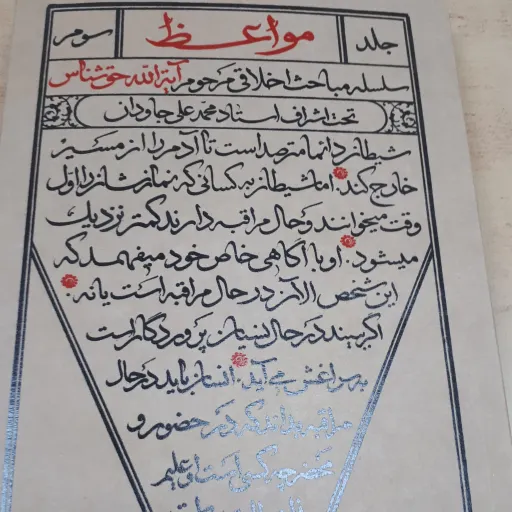 جلد مواعظ سوم
سلسله مباحث اخلاقی مرحوم آیة الله حق شناس
تحت اشراف استاد محمد علی جاودان
شیطان دائما مترصد است تا آدم را از مسیر
خارج کند. اما شیطان به کسانی که نمازشان را اول
وقت میخوانند و حال مراقبه دارند کمتر نزدیک
میشود. او با آگاهی خاص خود میفهمد که
این شخص الان در حال مراقبه است یا نه.
اگر ببیند در حال نسیان پروردگار است
به سراغش می آید. انسان باید در حال
مراقبه بداند که در حضور و
محضر چه کسی است